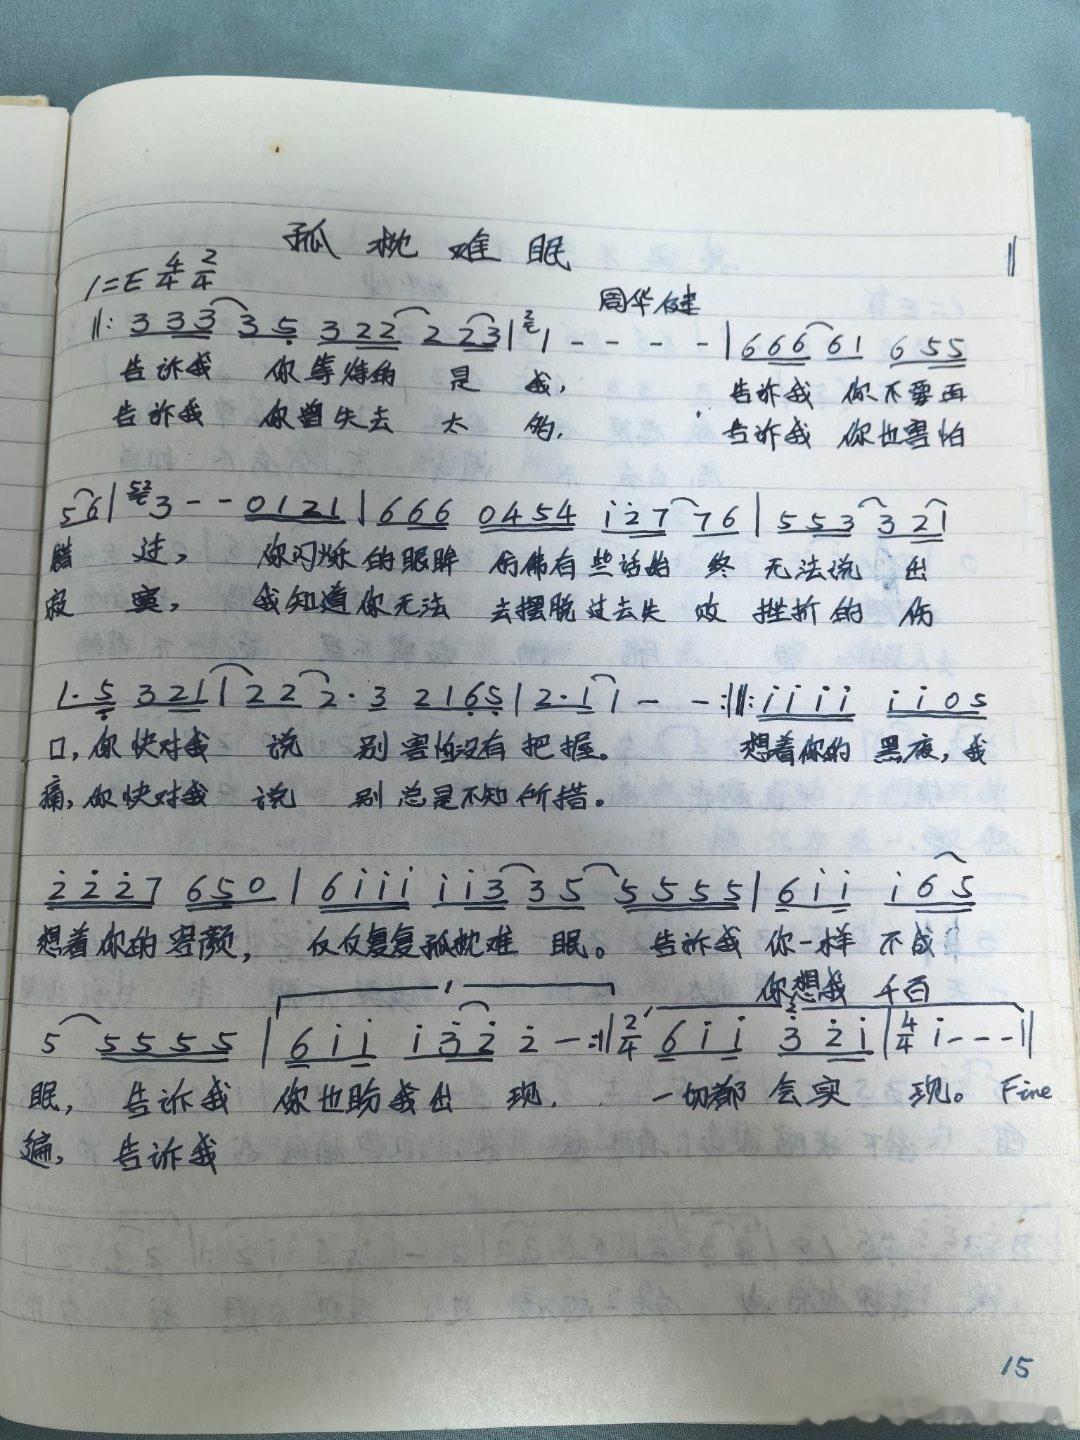 孤枕难眠
1=E 4/4 2/4
周华健
‖: 3 3 3 3 5 3 2 2 2 2 3 | 2 1 - - - - | 6 6 6 6 1 6 5 5
告诉我 你等待的 是 我, 告诉我 你不要再
告诉我 你曾失去 太 多, 告诉我 你也害怕
5 6 | 52 3 - - 0 1 2 1 | 6 6 6 0 4 5 4 i 2 7 7 6 | 5 5 3 3 2 1
错 过, 你闪烁的眼眸 仿佛有些话始 终 无法说 出
寂 寞, 我知道你无法 去摆脱过去失 败 挫折的 伤
1· 5 3 2 1 1 2 2 2· 3 2 1 6 5 | 2· 1 1 - - :‖: i i i i i i 0 5
口, 你快对我 说 别 害怕没有把握。 想着你的 黑夜, 我
痛, 你快对我 说 别 总是不知所措。
2 2 2 7 6 5 0 | 6 i i i i i 3 3 5 5 5 5 5 | 6 i i i 6 5
想着你的容颜, 反反复复孤枕难 眠。 告诉我 你一样 不成
你想我 千百
5 5 5 5 5 | 6 i i i 3 2 2 - :‖ 2/4 6 i i 3 2 i | 4/4 i - - - ‖
眠, 告诉我 你也盼我出 现. 一切都 会实 现。 Fine
遍, 告诉我
15